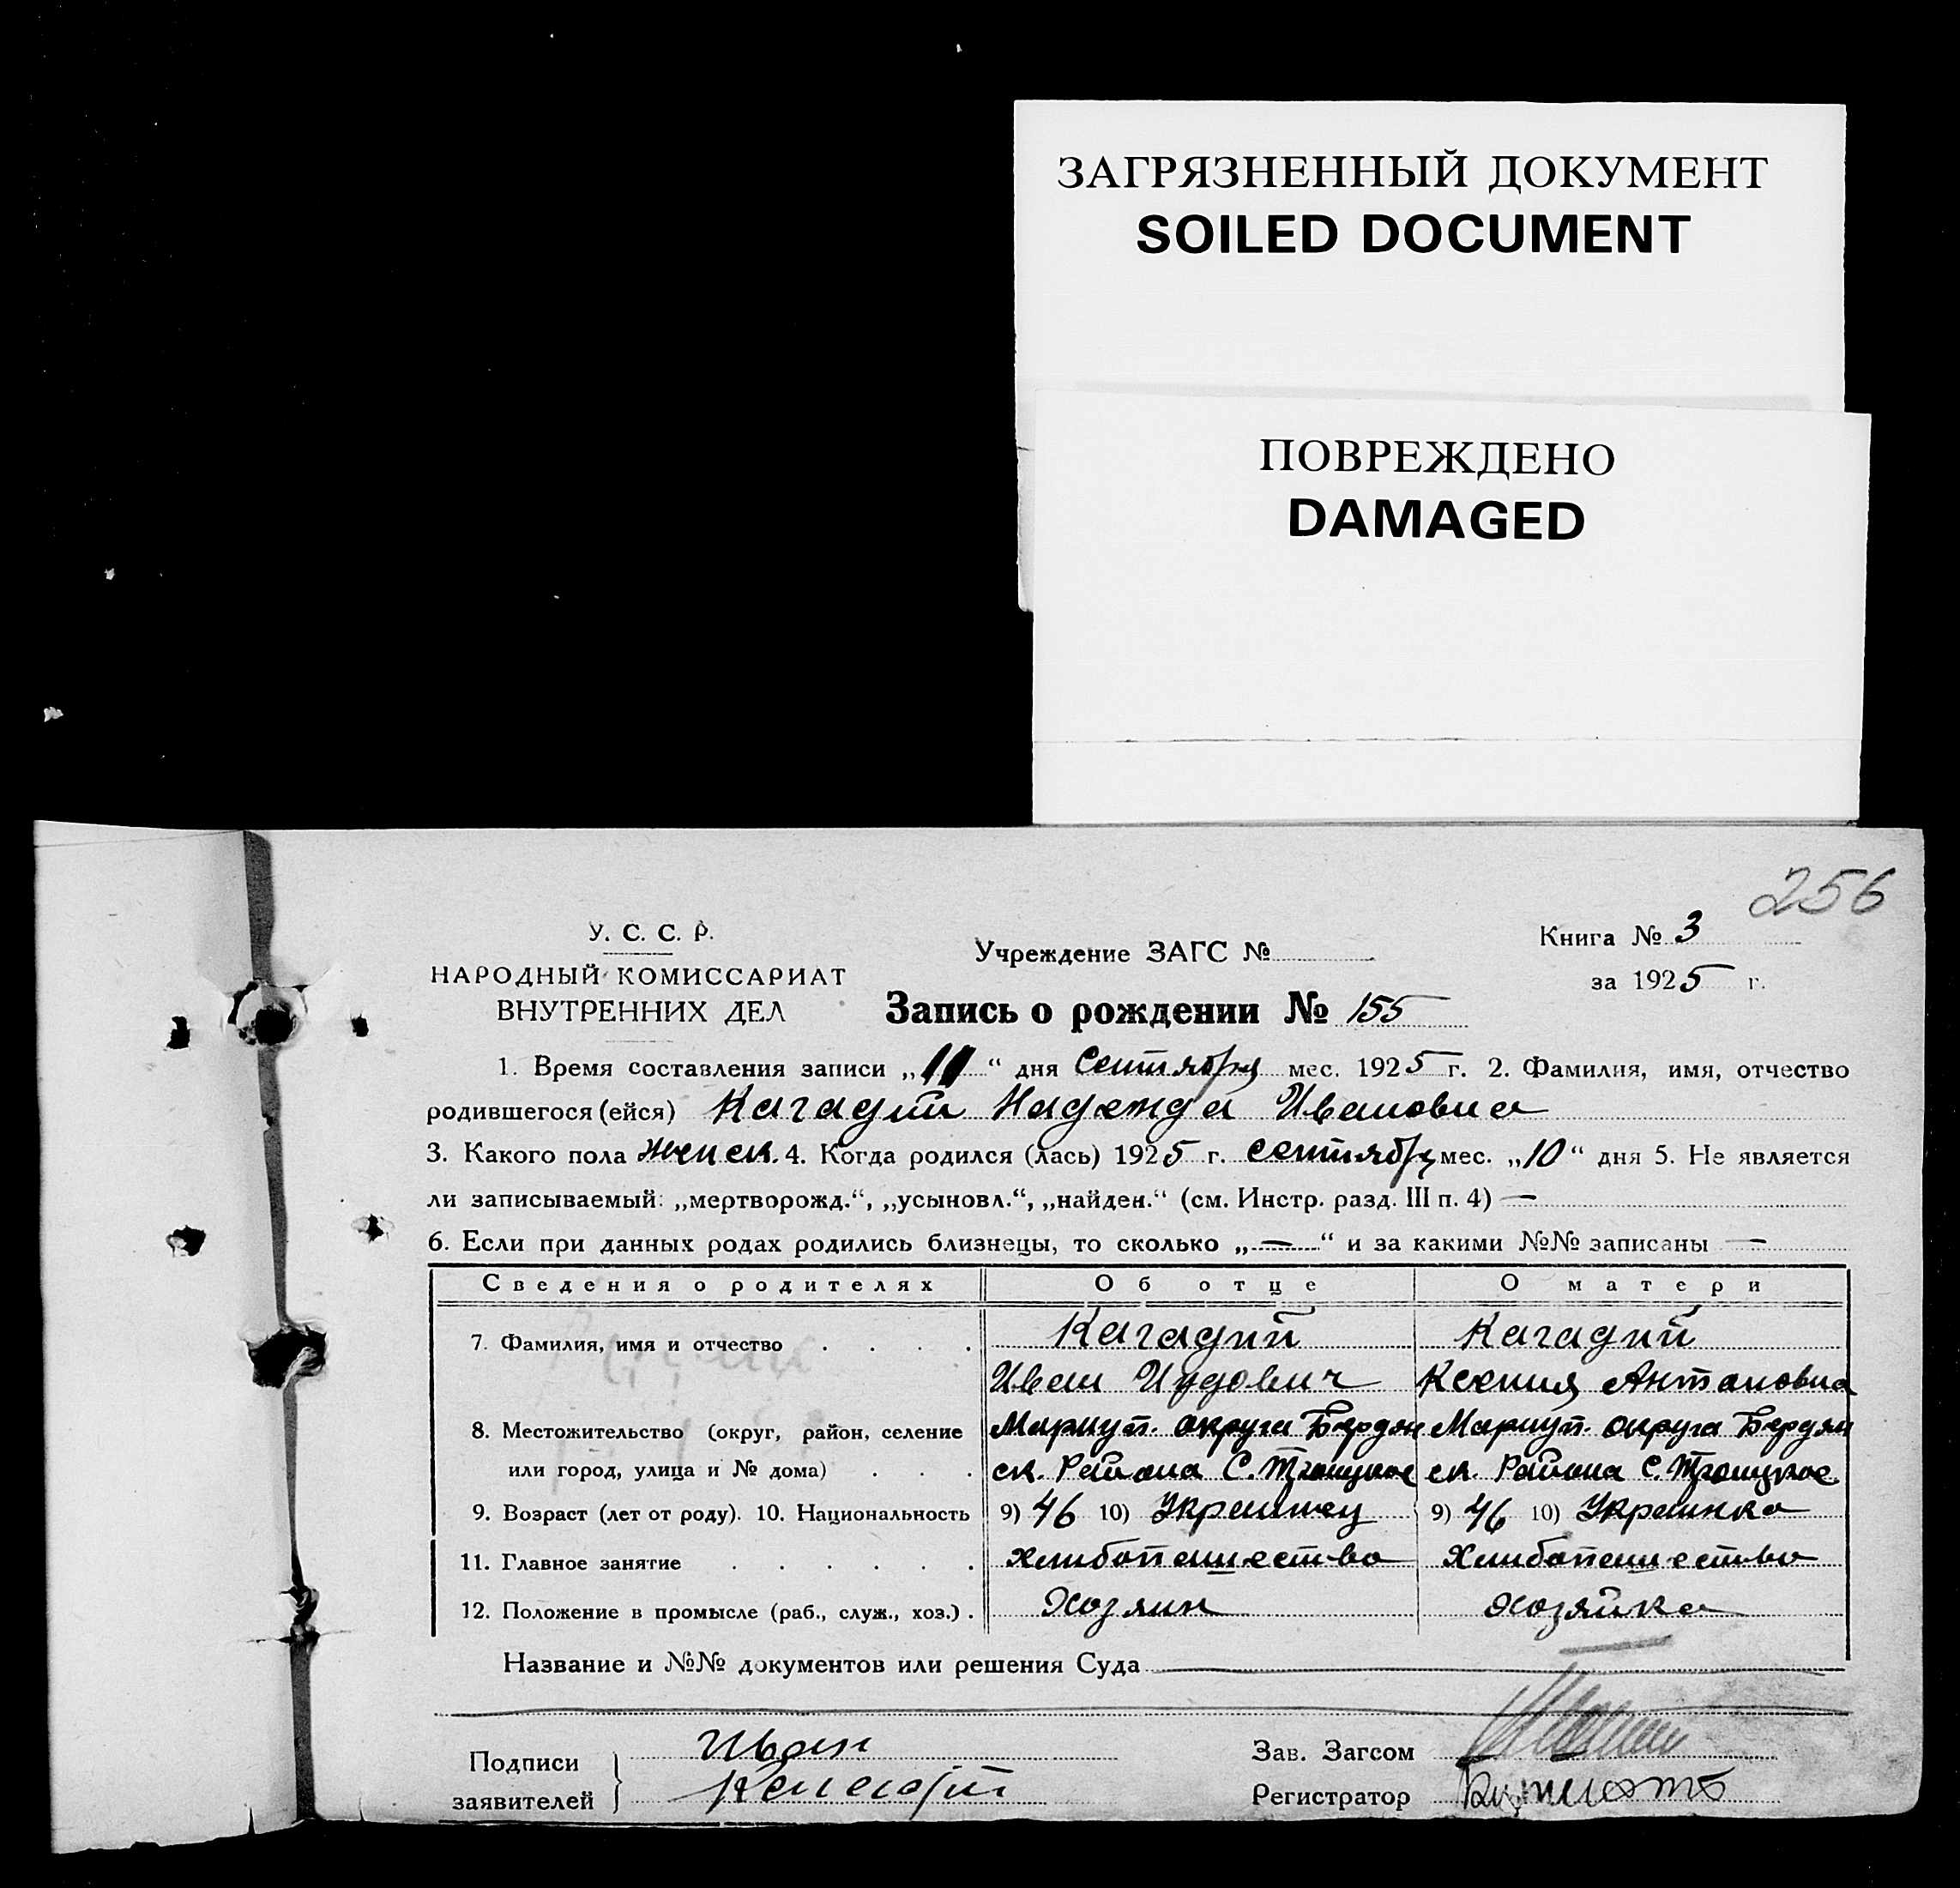 ЗАГРЯЗНЕННЫЙ ДОКУМЕНТ
SOILED DOCUMENT
ПОВРЕЖДЕНО
DAMAGED
256
У. С. С. Р.
НАРОДНЫЙ КОМИССАРИАТ
ВНУТРЕННИХ ДЕЛ
Учреждение ЗАГС №
Книга № 3
за 1925 г.
Запись о рождении № 155
1. Время составления записи „11“ дня Сентября мес. 1925 г. 2. Фамилия, имя, отчество
родившегося (ейся) Кагадий Надежда Ивановна
3. Какого пола женск. 4. Когда родился (лась) 1925 г. сентября мес. „10“ дня 5. Не является
ли записываемый: „мертворожд.“, „усыновл.“, „найден.“ (см. Инстр. разд. III п. 4) —
6. Если при данных родах родились близнецы, то сколько „—“ и за какими №№ записаны —
Сведения о родителях Об отце О матери
7. Фамилия, имя и отчество . . . . Кагадий Кагадий
Иван Иудович Ксения Антоновна
8. Местожительство (округ, район, селение Мариуп. округа Бердян Мариуп. округа Бердян
или город, улица и № дома) . . . ск. Района С. Троицкое ск. Района С. Троицкое
9. Возраст (лет от роду). 10. Национальность 9) 46 10) Украинец 9) 46 10) Украинка
11. Главное занятие . . . . . . Хлибопашество Хлибопашество
12. Положение в промысле (раб., служ., хоз.) . Хозяин Хозяйка
Название и №№ документов или решения Суда
Подписи
заявителей
Иван
Зав. Загсом
Регистратор